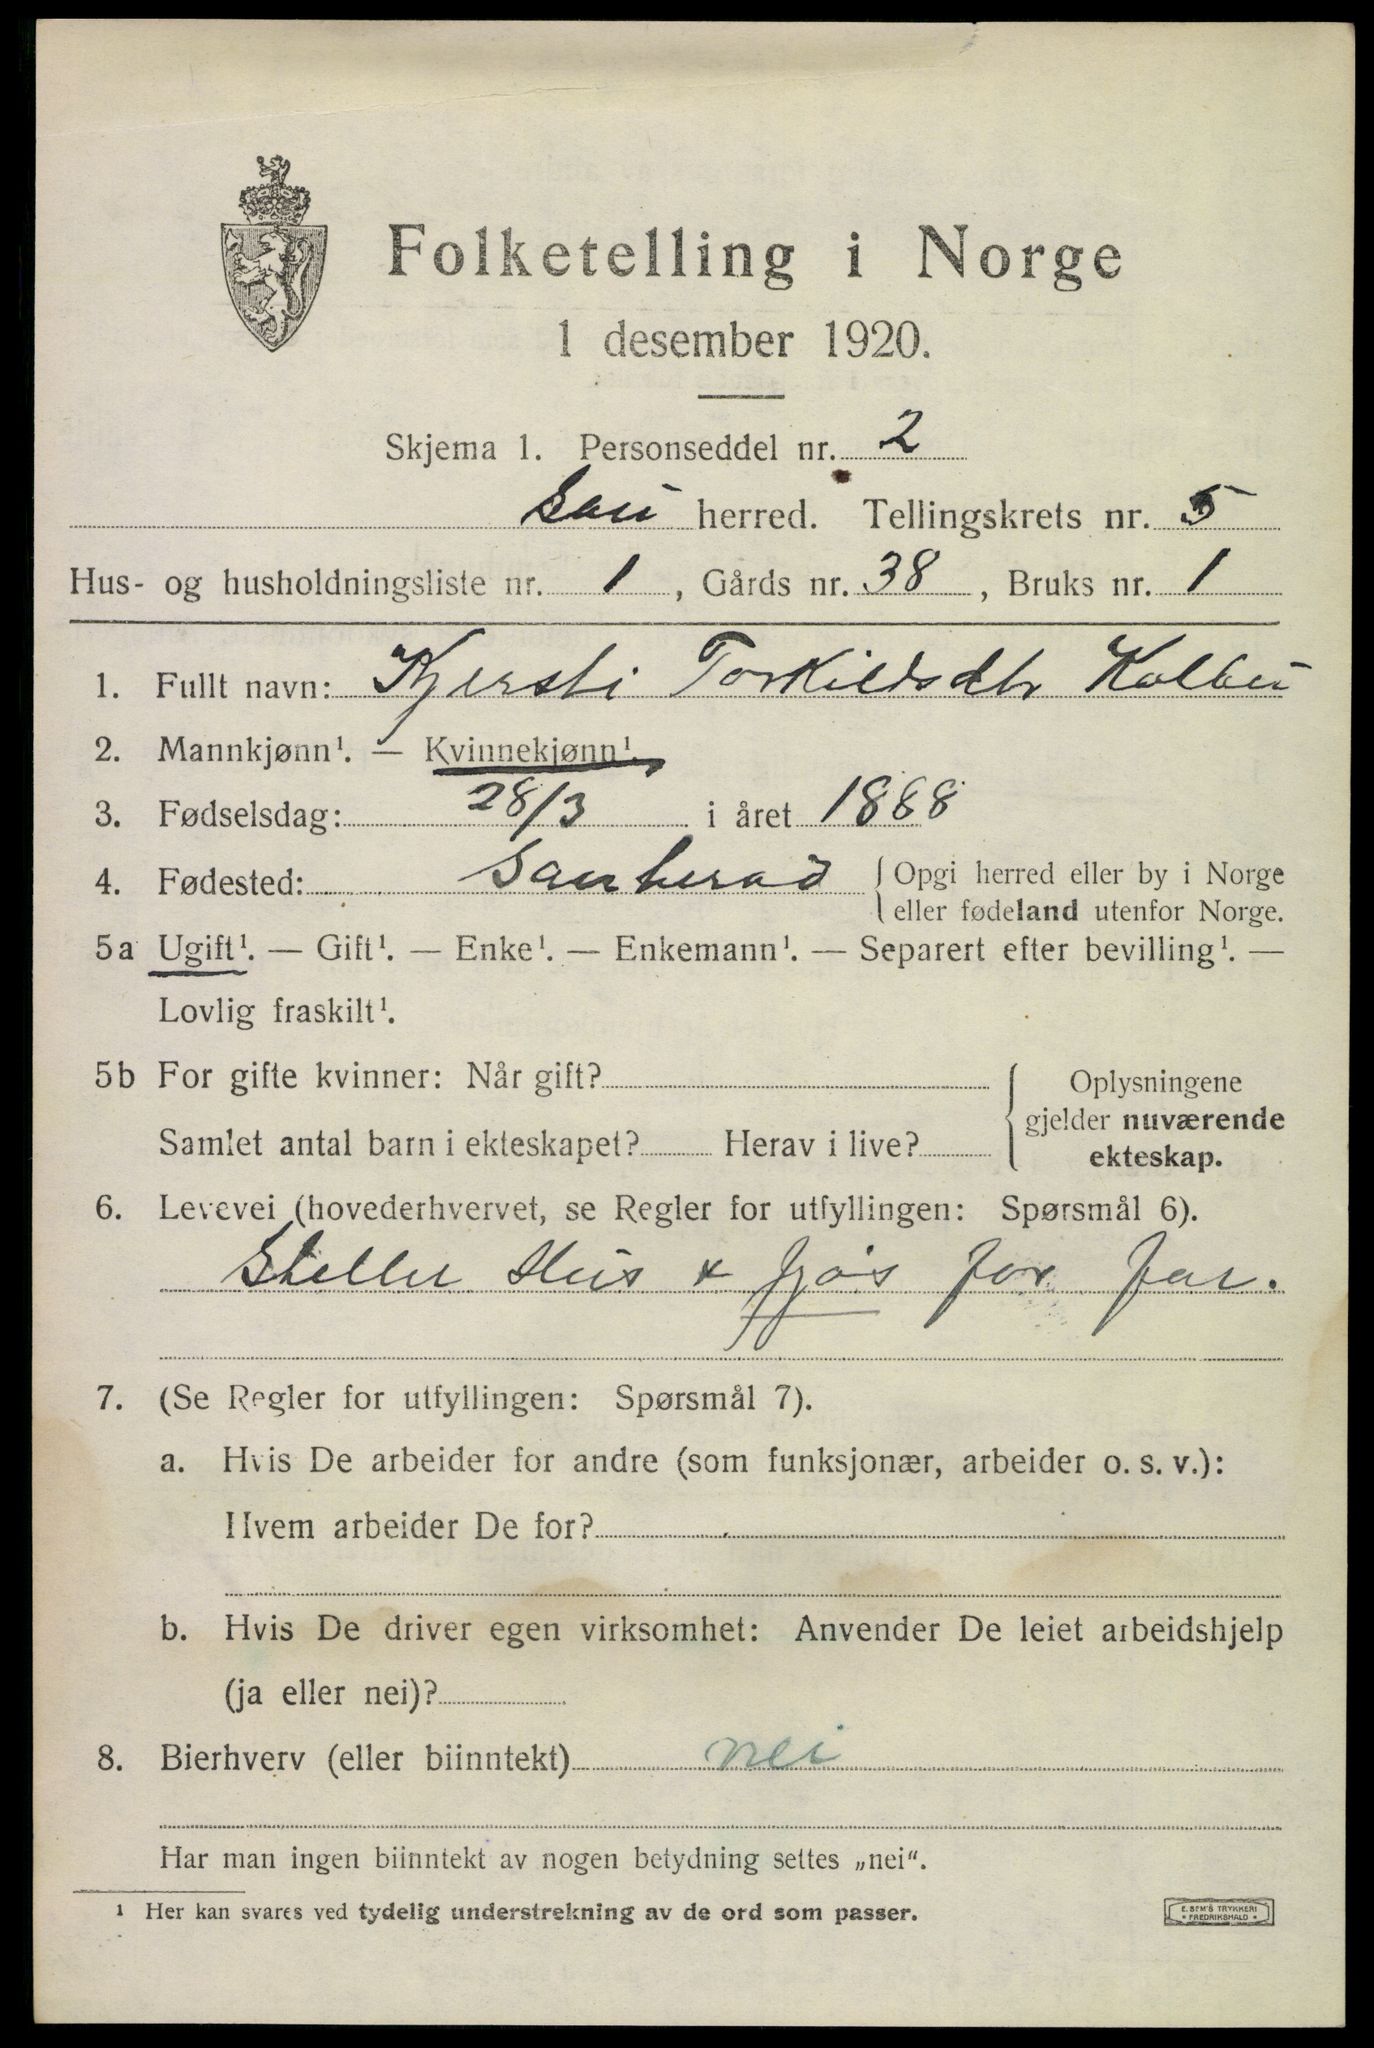 Folketelling i Norge
1 desember 1920.
Skjema 1. Personseddel nr. 2
Sau herred. Tellingskrets nr. 5
Hus- og husholdningsliste nr. 1, Gårds nr. 38, Bruks nr. 1
1. Fullt navn: Kjersti Torkildsdtr Kolbu
2. Mannkjønn¹. — Kvinnekjønn¹.
3. Fødselsdag: 28/3 i året 1888
4. Fødested: Sauherad { Opgi herred eller by i Norge
eller fødeland utenfor Norge.
5a Ugift¹. — Gift¹. — Enke¹. — Enkemann¹. — Separert efter bevilling¹. —
Lovlig fraskilt¹.
5b For gifte kvinner: Når gift?
Samlet antal barn i ekteskapet? Herav i live?
{ Oplysningene
gjelder nuværende
ekteskap.
6. Levevei (hovederhvervet, se Regler for utfyllingen: Spørsmål 6).
Steller Hus & fjøs for far.
7. (Se Regler for utfyllingen: Spørsmål 7).
a. Hvis De arbeider for andre (som funksjonær, arbeider o. s. v.):
Hvem arbeider De for?
b. Hvis De driver egen virksomhet: Anvender De leiet arbeidshjelp
(ja eller nei)?
8. Bierhverv (eller biinntekt) nei
Har man ingen biinntekt av nogen betydning settes „nei“.
¹ Her kan svares ved tydelig understrekning av de ord som passer.
E. SEM'S TRYKKERI
• FREDRIKSHALD •